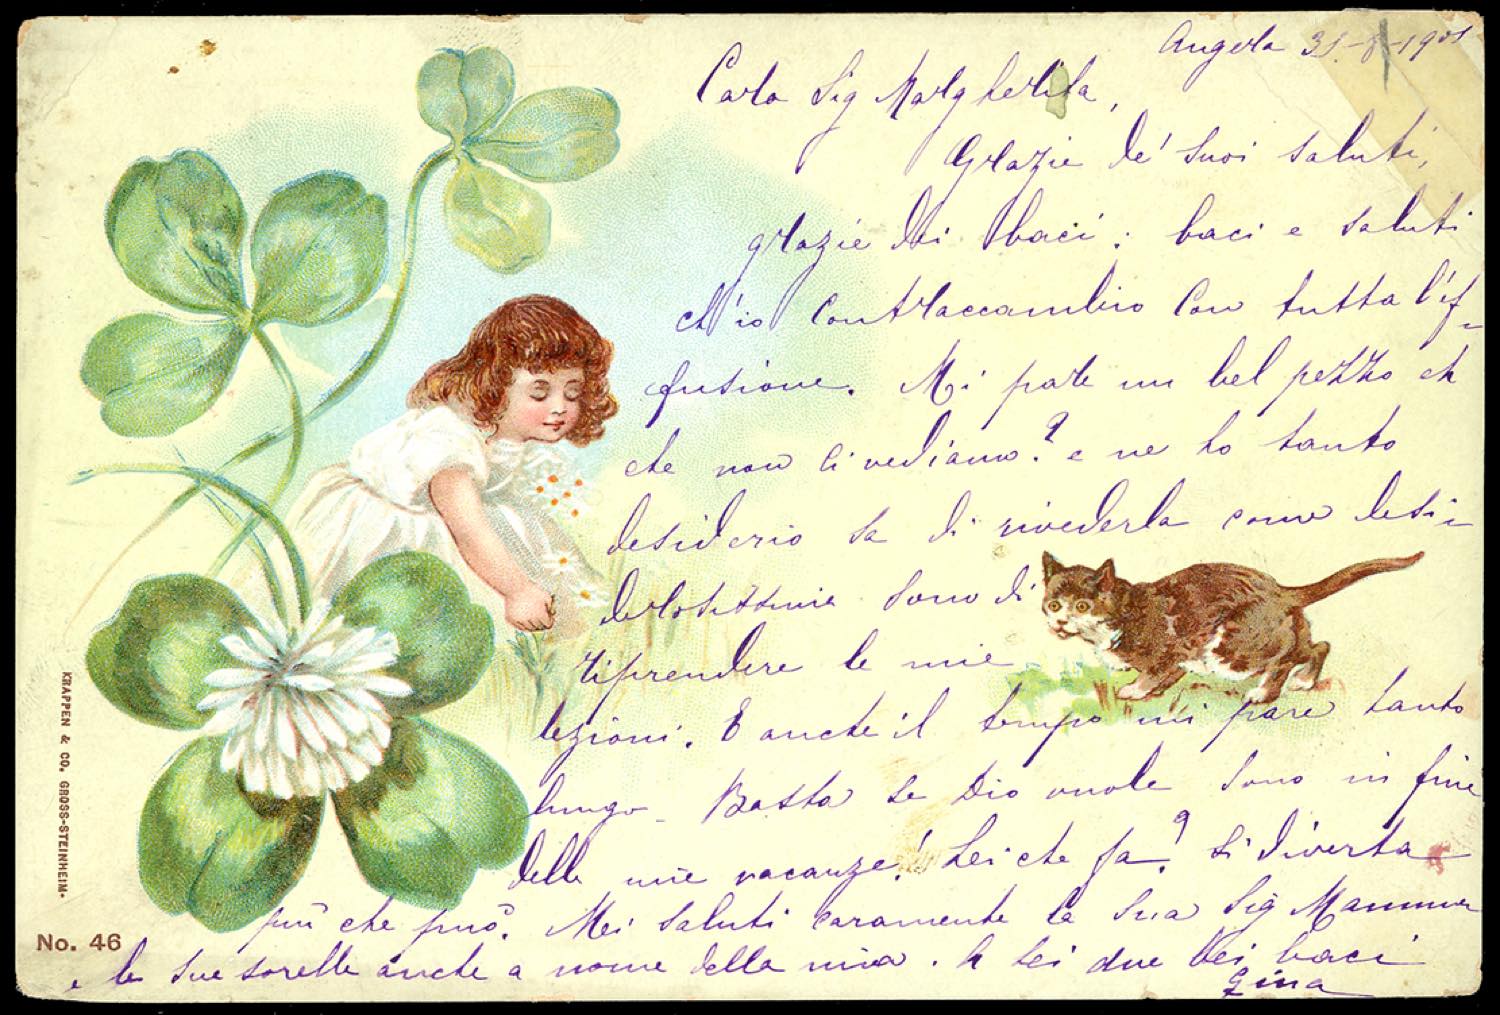 Angera 31-8-1901
Cara Sig Margherita,
Grazie de' suoi saluti,
grazie dei baci; baci e saluti
ch'io contraccambio con tutta l'ef-
fusione. Mi pare un bel pezzo ch
che non ci vediamo? e ne ho tanto
desiderio sa di rivederla come desi-
derosissima sono di
riprendere le mie
lezioni. E anche il tempo mi pare tanto
lungo - Basta se Dio vuole sono in fine
delle mie vacanze! Lei che fa? Si diverta
più che può. Mei saluti caramente la Sua Sig Mamma
e le sue sorelle anche a nome della mia. A Lei due bei baci
Gina
KRAPPEN & CO. GROSS-STEINHEIM.
No. 46